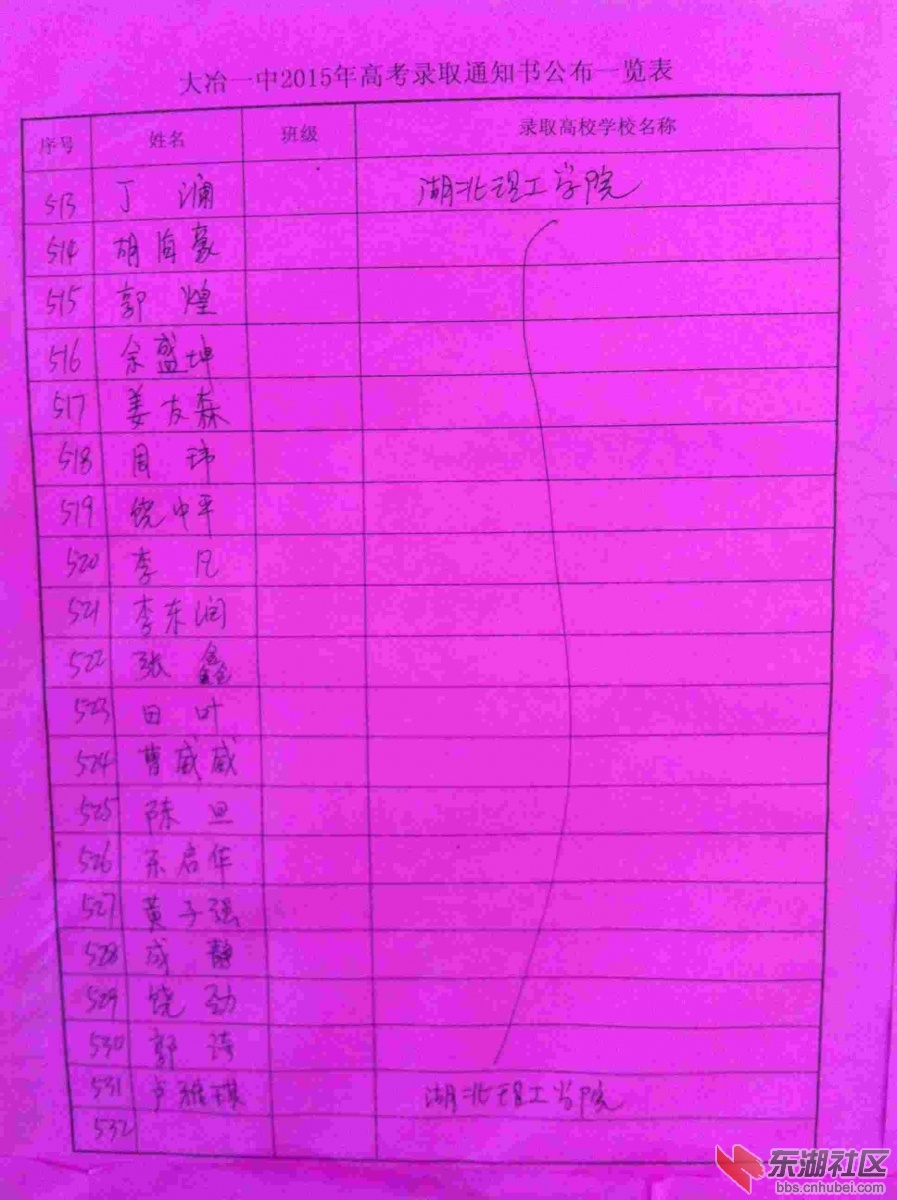 大冶一中2015年高考录取通知书公布一览表
序号 姓名 班级 录取高校学校名称
513 丁 澜 湖北理工学院
514 胡海豪
515 郭 煌
516 余盛坤
517 姜友森
518 周 玮
519 饶中平
520 李 凡
521 李东润
522 张 鑫
523 田 叶
524 曹威威
525 陈 旦
526 启华
527 黄子强
528 成 静
529 饶 劲
530 郭 诗
531 卢雅琪 湖北理工学院
532
东湖社区
bbs.cnhubei.com